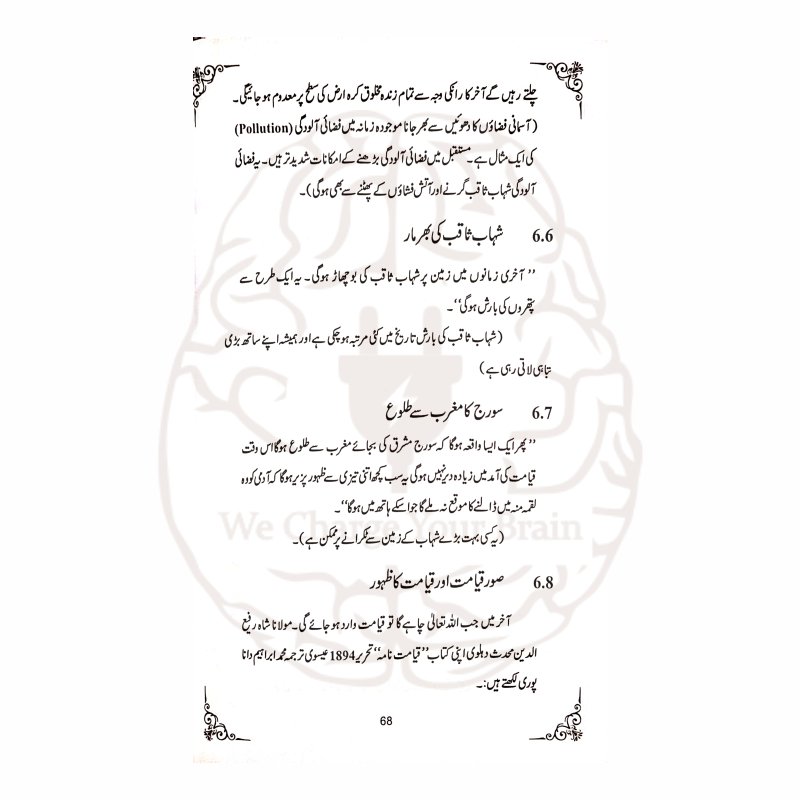 چلتے رہیں گے آخر کار انکی وجہ سے تمام زندہ مخلوق کرہ ارض کی سطح پر معدوم ہو جائیگی۔
(آسمانی فضاؤں کا دھوئیں سے بھر جانا موجودہ زمانہ میں فضائی آلودگی (Pollution)
کی ایک مثال ہے۔ مستقبل میں فضائی آلودگی بڑھنے کے امکانات شدید تر ہیں۔ یہ فضائی
آلودگی شہاب ثاقب گرنے اور آتش فشاؤں کے پھٹنے سے بھی ہوگی)۔
6.6 شہاب ثاقب کی بھر مار
”آخری زمانوں میں زمین پر شہاب ثاقب کی بوچھاڑ ہوگی۔ یہ ایک طرح سے
پتھروں کی بارش ہوگی“۔
(شہاب ثاقب کی بارش تاریخ میں کئی مرتبہ ہو چکی ہے اور ہمیشہ اپنے ساتھ بڑی
تباہی لاتی رہی ہے)
6.7 سورج کا مغرب سے طلوع
”پھر ایک ایسا واقعہ ہوگا کہ سورج مشرق کی بجائے مغرب سے طلوع ہوگا اس وقت
قیامت کی آمد میں زیادہ دیر نہیں ہوگی یہ سب کچھ اتنی تیزی سے ظہور پزیر ہوگا کہ آدمی کو وہ
لقمہ منہ میں ڈالنے کا موقع نہ ملے گا جو اسکے ہاتھ میں ہوگا“۔
(یہ کسی بہت بڑے شہاب کے زمین سے ٹکرانے پر ممکن ہے)۔
We Charge Your Brain
6.8 صور قیامت اور قیامت کا ظہور
آخر میں جب اللہ تعالیٰ چاہے گا تو قیامت وارد ہو جائے گی۔ مولانا شاہ رفیع
الدین محدث دہلوی اپنی کتاب ”قیامت نامہ“ تحریر 1894 عیسوی ترجمہ محمد ابراہیم دانا
پوری لکھتے ہیں:۔
68